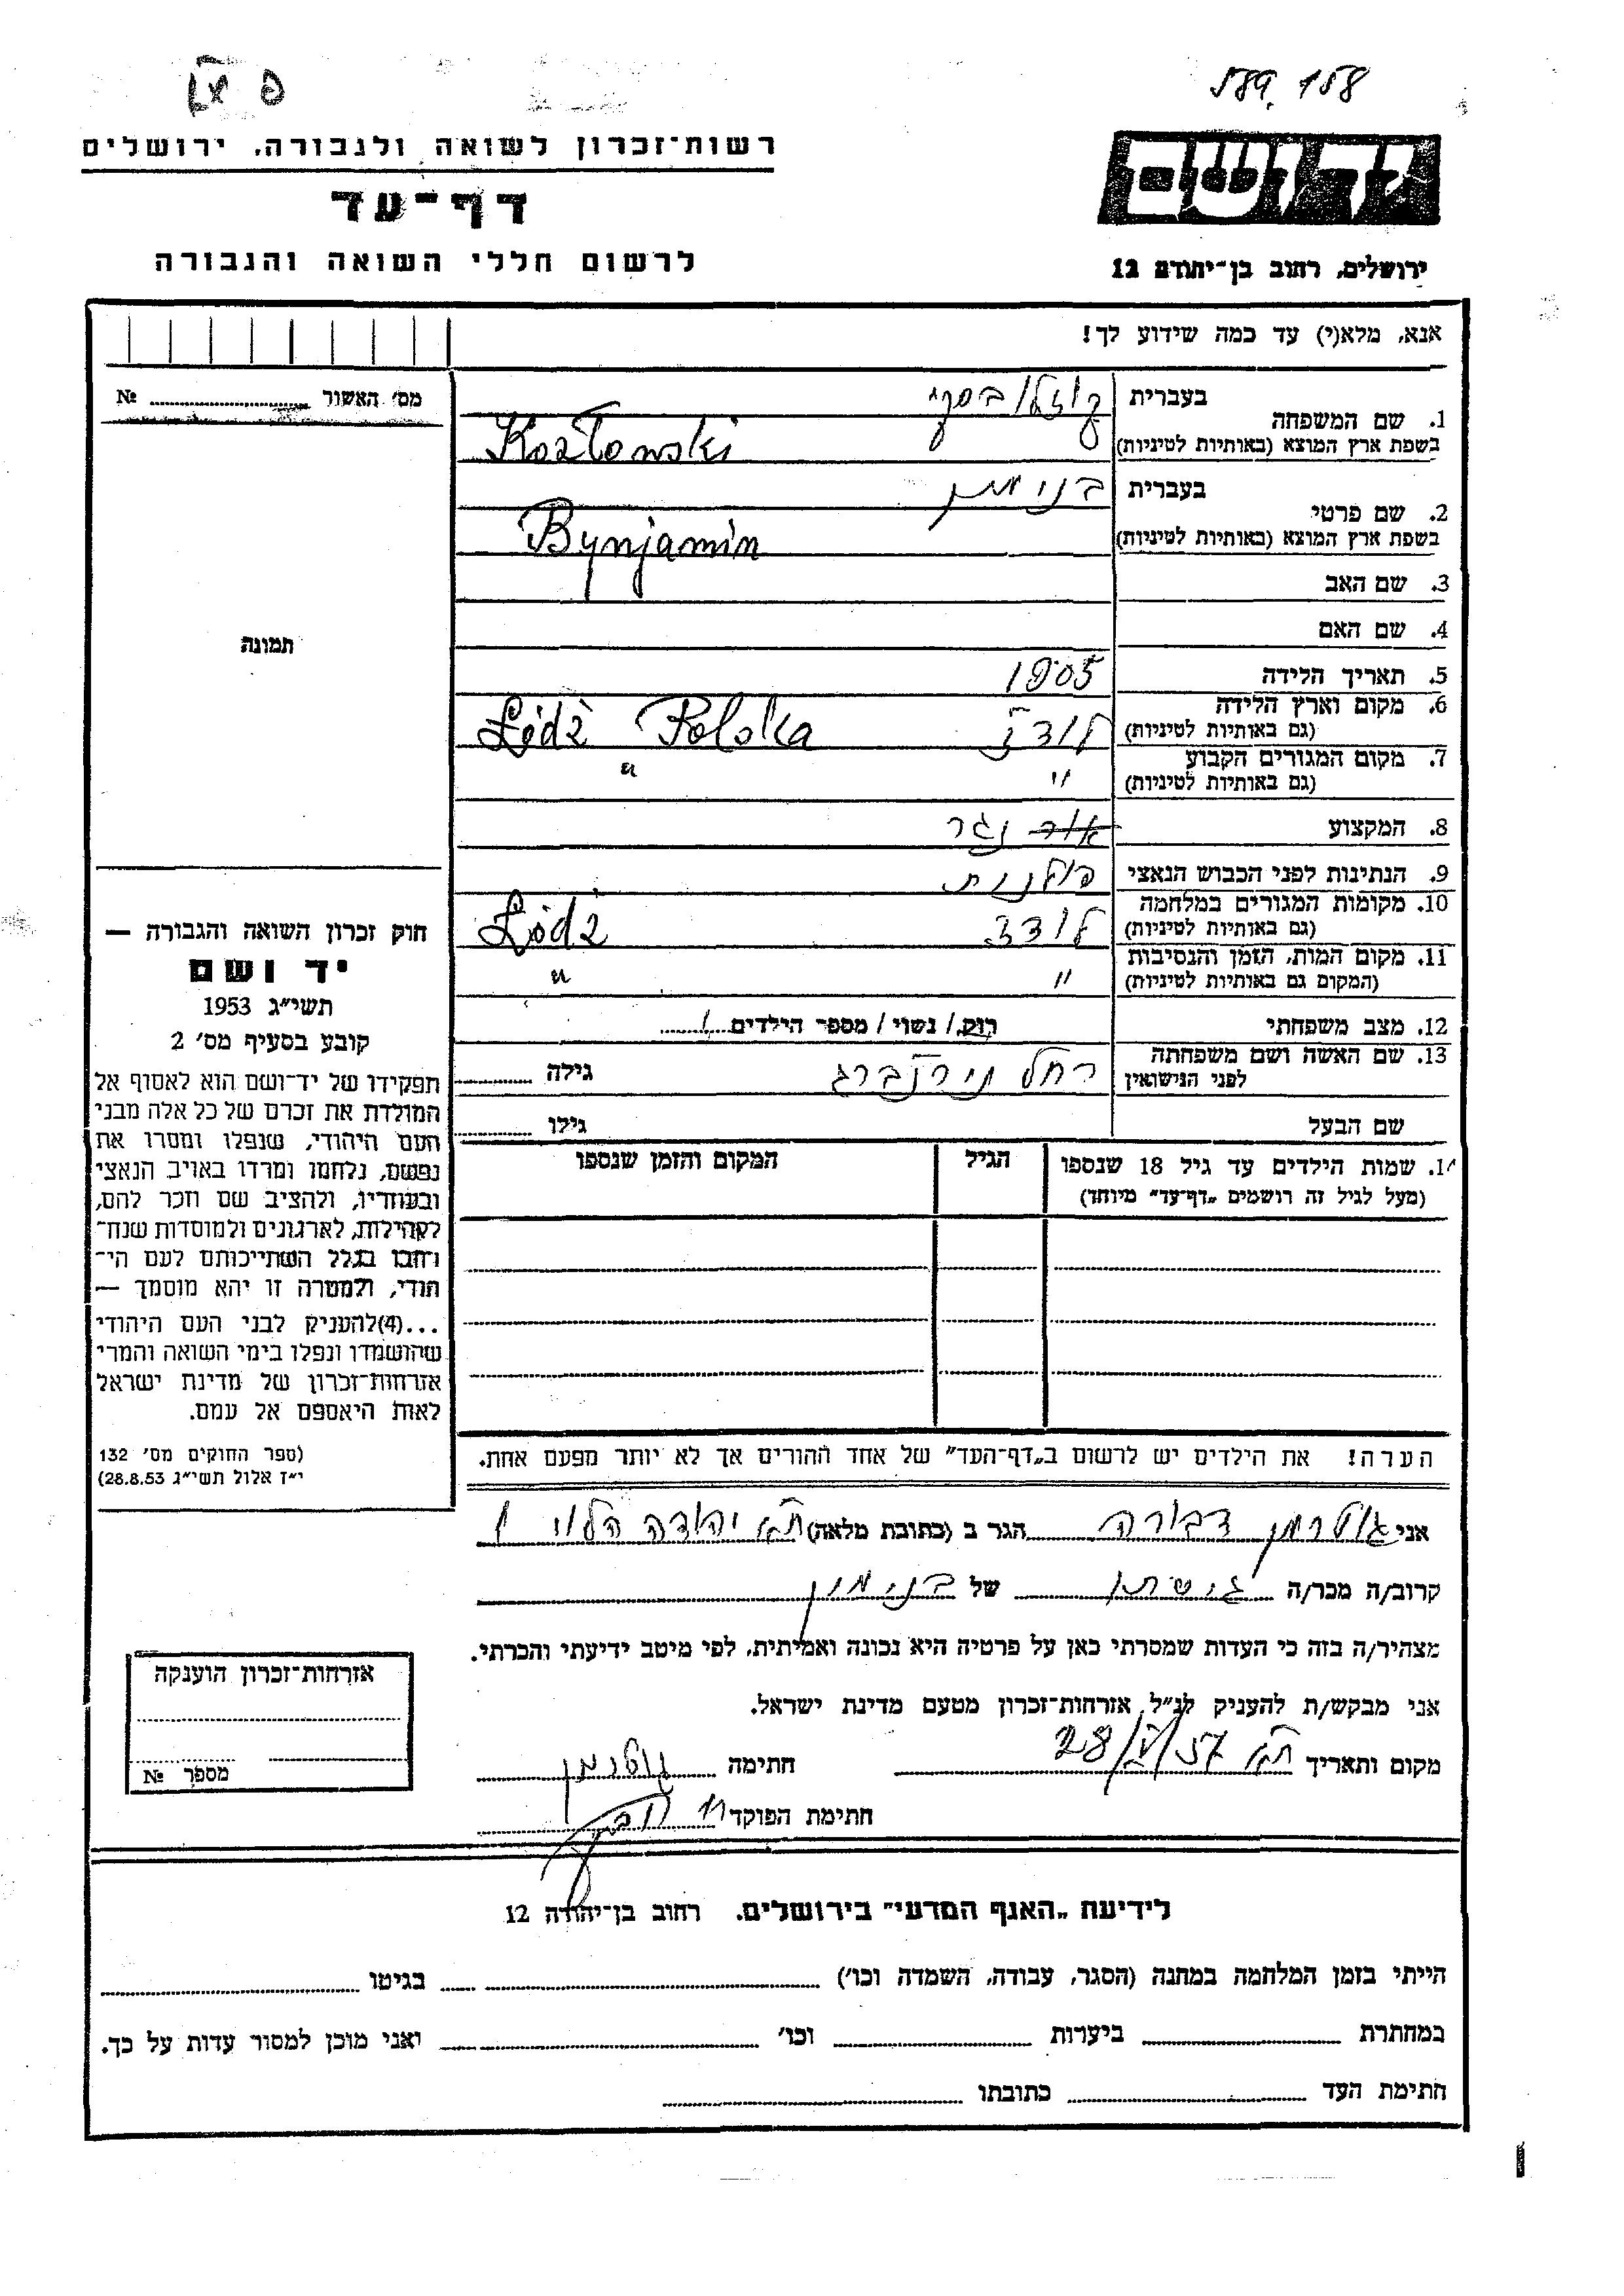 589. 158
יד ושם
ירושלים, רחוב בן־יהודה 12
רשות־זכרון לשואה ולגבורה, ירושלים
דף־עד
לרשום חללי השואה והגבורה
אנא, מלא(י) עד כמה שידוע לך!
מס׳ האשור ........ №
1. שם המשפחה
בעברית קוזלובסקי
בשפת ארץ המוצא (באותיות לטיניות) Kozłowski
2. שם פרטי
בעברית בנימין
בשפת ארץ המוצא (באותיות לטיניות) Bynjamin
3. שם האב
4. שם האם
5. תאריך הלידה 1905
6. מקום וארץ הלידה
(גם באותיות לטיניות) לודז Łódź Polska
7. מקום המגורים הקבוע
(גם באותיות לטיניות) " "
8. המקצוע נגר
9. הנתינות לפני הכבוש הנאצי פולנית
10. מקומות המגורים במלחמה
(גם באותיות לטיניות) לודז Łódź
11. מקום המות, הזמן והנסיבות
(המקום גם באותיות לטיניות) " "
12. מצב משפחתי רווק/ נשוי/ מספר הילדים
13. שם האשה ושם משפחתה
לפני הנישואין רחל נירנברג גילה
שם הבעל גילו
14. שמות הילדים עד גיל 18 שנספו הגיל המקום והזמן שנספו
(מעל לגיל זה רושמים „דף־עד" מיוחד)
הערה! את הילדים יש לרשום ב„דף־העד" של אחד ההורים אך לא יותר מפעם אחת.
תמונה
חוק זכרון השואה והגבורה —
יד ושם
תשי״ג 1953
קובע בסעיף מס׳ 2
תפקידו של יד־ושם הוא לאסוף אל
המולדת את זכרם של כל אלה מבני
העם היהודי, שנפלו ומסרו את
נפשם, נלחמו ומרדו באויב הנאצי
ובעוזריו, ולהציב שם וזכר להם,
לקהילות, לארגונים ולמוסדות שנח־
רבו בגלל השתייכותם לעם הי־
הודי, ולמטרה זו יהא מוסמך —
...(4)להעניק לבני העם היהודי
שהושמדו ונפלו בימי השואה והמרי
אזרחות־זכרון של מדינת ישראל
לאות היאספם אל עמם.
(ספר החוקים מס׳ 132
י״ז אלול תשי״ג 28.8.53)
אני גוטרמן דבורה הגר ב (כתובת מלאה) ת״א יהודה הלוי 1
קרוב/ה מכר/ה גיסתו של בנימין
מצהיר/ה בזה כי העדות שמסרתי כאן על פרטיה היא נכונה ואמיתית, לפי מיטב ידיעתי והכרתי.
אני מבקש/ת להעניק לנ״ל אזרחות־זכרון מטעם מדינת ישראל.
מקום ותאריך ת״א 28/V/57 חתימה
חתימת הפוקד
אזרחות־זכרון הוענקה
מספר №
לידיעת „האגף המדעי" בירושלים. רחוב בן־יהודה 12
הייתי בזמן המלחמה במחנה (הסגר, עבודה, השמדה וכו׳) בגיטו
במחתרת ביערות וכו׳ ואני מוכן למסור עדות על כך.
חתימת העד כתובתו